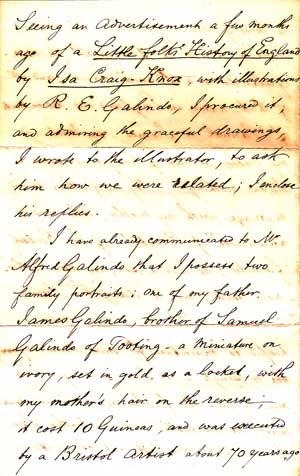 Seeing an Advertisement a few months
ago of a Little folks' History of England
by Isa Craig-Knox, with illustrations
by R. E. Galindo, I procured it,
and admiring the graceful drawings,
I wrote to the illustrator, to ask
him how we were related; I enclose
his replies.
I have already communicated to Mr.
Alfred Galindo that I possess two
family portraits; one of my father
James Galindo, brother of Samuel
Galindo of Tooting - a miniature on
ivory, set in gold, as a locket, with
my mother's hair on the reverse;-
it cost 10 Guineas, and was executed
by a Bristol Artist about 70 years ago